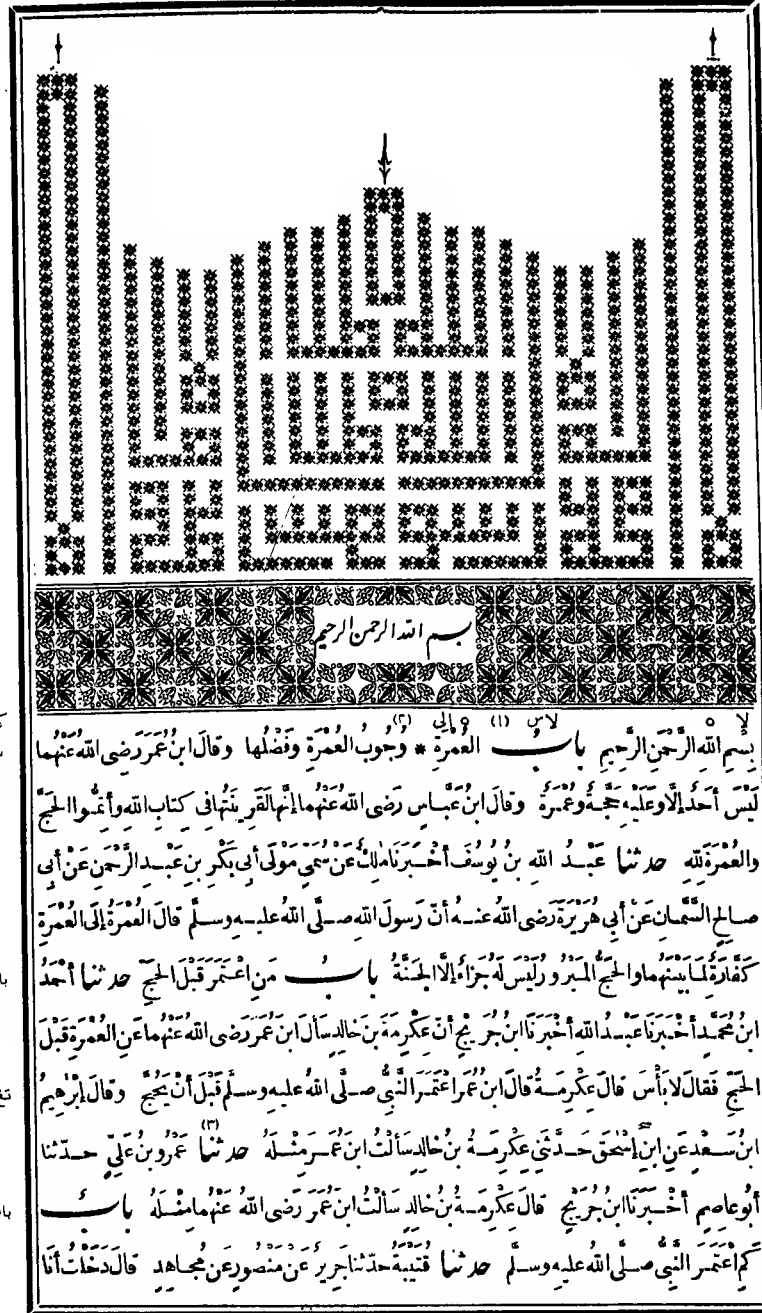 بسم الله الرحمن الرحيم
لا ه لاس (١) ه إلى (٢)
بِسْمِ اللهِ الرَّحْمٰنِ الرَّحِيمِ بابُ العُمْرَةِ * وُجُوبُ العُمْرَةِ وفَضْلُها وقالَ ابنُ عُمَرَ رَضِىَ اللهُ عَنْهُما
لَيْسَ أحَدٌ إلَّا وعَلَيْهِ حَجَّةٌ وعُمْرَةٌ وقالَ ابنُ عَبَّاسٍ رَضِىَ اللهُ عَنْهُما إنَّها لَقَرِينَتُها فى كتابِ اللهِ وأتِمُّوا الحَجَّ
والعُمْرَةَ لِلّهِ حدثنا عَبْدُ اللهِ بنُ يُوسُفَ أخْبَرَنا مٰلكٌ عنْ سُمَىٍّ مَوْلَى أبى بَكْرِ بنِ عَبْدِ الرَّحْمٰنِ عَنْ أبى
صالِحٍ السَّمَّانِ عَنْ أبى هُرَيْرَةَ رَضِىَ اللهُ عنهُ أنَّ رَسُولَ اللهِ صلَّى اللهُ عليهِ وسلَّم قالَ العُمْرَةُ إلَى العُمْرَةِ
كَفَّارَةٌ لِمَا بَيْنَهُما والحَجُّ المَبْرُورُ لَيْسَ لَهُ جَزَاءٌ إلَّا الجَنَّةُ بابُ مَنِ اعْتَمَرَ قَبْلَ الحَجِّ حدثنا أحْمَدُ
ابنُ مُحَمَّدٍ أخْبَرَنا عَبْدُ اللهِ أخْبَرَنا ابنُ جُرَيْجٍ أنَّ عِكْرِمَةَ بنَ خالِدٍ سَأَلَ ابنَ عُمَرَ رَضِىَ اللهُ عَنْهُما عَنِ العُمْرَةِ قَبْلَ
الحَجِّ فقالَ لا بَأْسَ قالَ عِكْرِمَةُ قالَ ابنُ عُمَرَ اعْتَمَرَ النَّبِىُّ صلَّى اللهُ عليه وسلَّم قَبْلَ أنْ يَحُجَّ وقالَ إبْرٰهِيمُ
ابنُ سَعْدٍ عَنِ ابنِ إسْحٰقَ حَدَّثَنِى عِكْرِمَةُ بنُ خالِدٍ سَألْتُ ابنَ عُمَرَ مِثْلَهُ حدثنا (٣) عَمْرُو بنُ عَلِىٍّ حدّثنا
أبُو عاصِمٍ أخْبَرَنا ابنُ جُرَيْجٍ قالَ عِكْرِمَةُ بنُ خالِدٍ سَألْتُ ابنَ عُمَرَ رَضِىَ اللهُ عَنْهُما مِثْلَهُ بابُ
كَمِ اعْتَمَرَ النَّبِىُّ صلَّى اللهُ عليه وسلَّم حدثنا قُتَيْبَةُ حدّثنا جَرِيرٌ عَنْ مَنْصُورٍ عَنْ مُجاهِدٍ قالَ دَخَلْتُ أنا